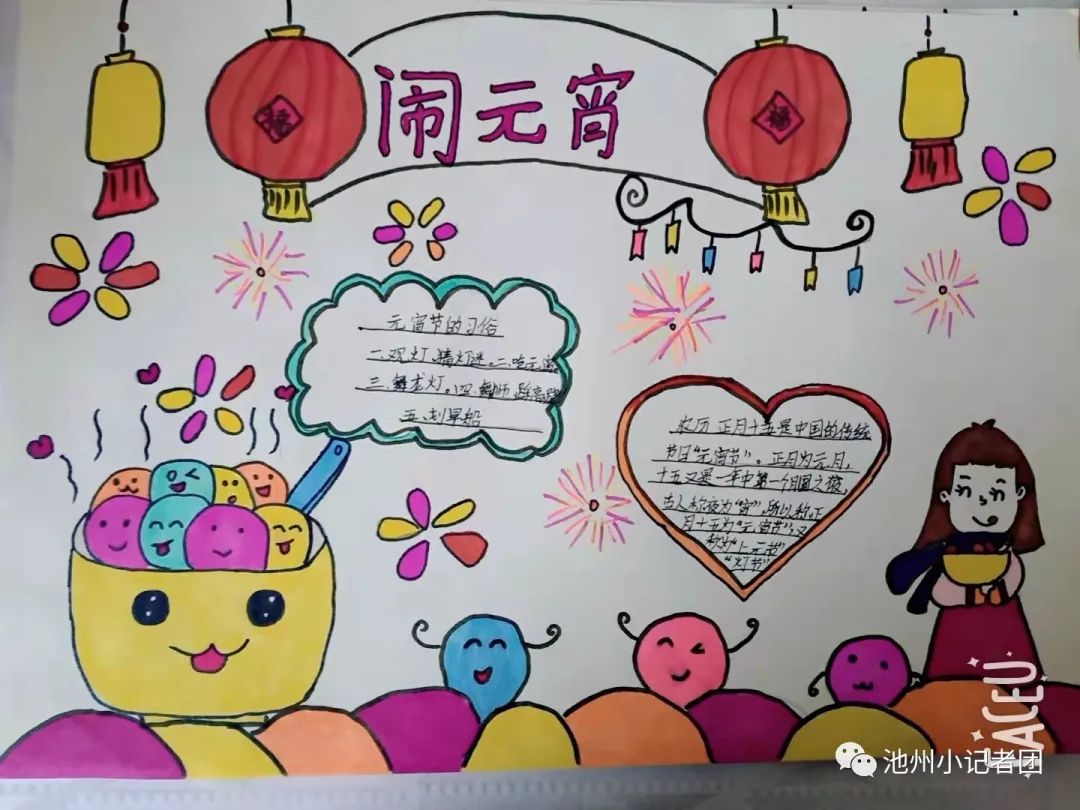 闹元宵
福
福
元宵节的习俗
一、观灯、猜灯谜。二、吃元宵
三、舞龙灯。四、舞狮、踩高跷
五、划旱船
农历正月十五是中国的传统
节日“元宵节”。正月为元月,
十五又是一年中第一个月圆之夜,
古人称夜为“宵”,所以称正
月十五为“元宵节”,又
称为“上元节”
“灯节”
FACEU
池州小记者团